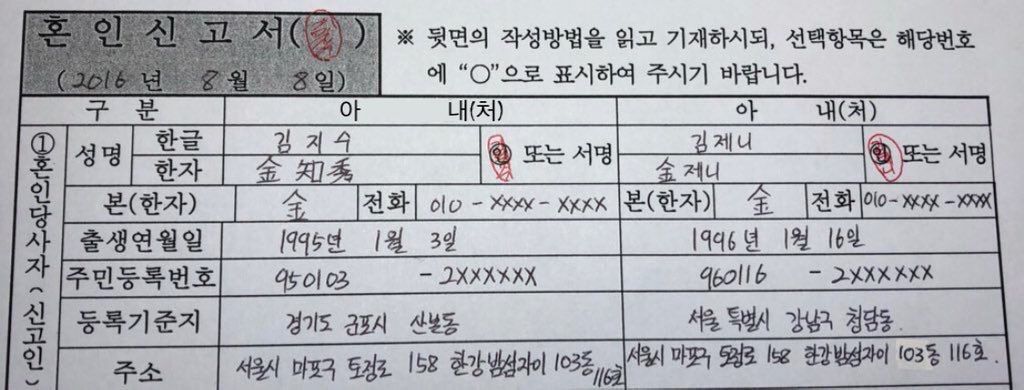 혼인신고서( )
(2016년 8월 8일)
※ 뒷면의 작성방법을 읽고 기재하시되, 선택항목은 해당번호
에 “○”으로 표시하여 주시기 바랍니다.
구 분 아 내(처) 아 내(처)
①혼인당사자(신고인)
성명 한글 김지수 ㊞ 또는 서명 김제니 ㊞ 또는 서명
한자 金知秀 金제니
본(한자) 金 전화 010-XXXX-XXXX 본(한자) 金 전화 010-XXXX-XXXX
출생연월일 1995년 1월 3일 1996년 1월 16일
주민등록번호 950103 -2XXXXXX 960116 -2XXXXXX
등록기준지 경기도 군포시 산본동 서울 특별시 강남구 청담동
주소 서울시 마포구 토정로 158 한강밤섬자이 103동 116호 서울시 마포구 토정로 158 한강밤섬자이 103동 116호.